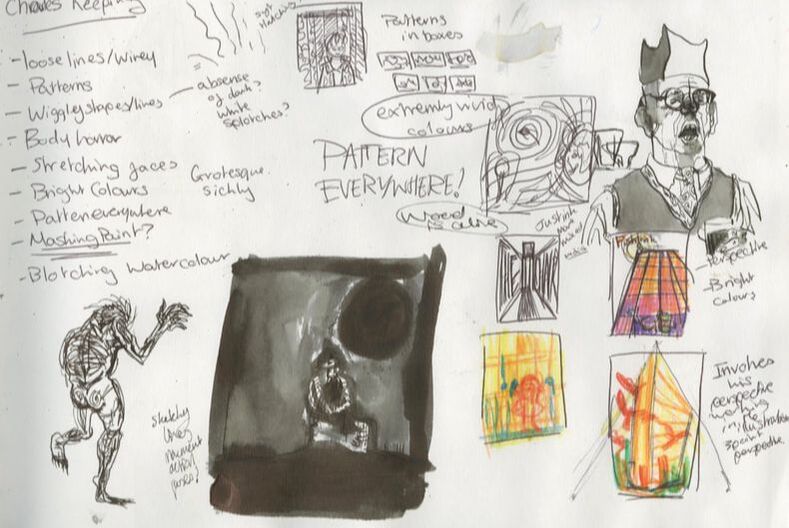 Charles Keeping
- loose lines/wirey
- Patterns
- Wiggley shapes/lines
- Body horror
- Stretching faces
- Bright Colours
- Patten everywhere
- Mashing Paint?
- Blotching watercolour
- absense
of dark?
white
splotches?
Grotesque.
sickly
Patterns
in boxes
extremly vivid
colours
PATTERN
EVERYWHERE!
Wood
is alive
Just ink
more
mixed
- Perspective
- Bright
colours
Involves
his
perspective
working
in illustration
3 point
perspective.
sketchy
lines
movement
action
poses!